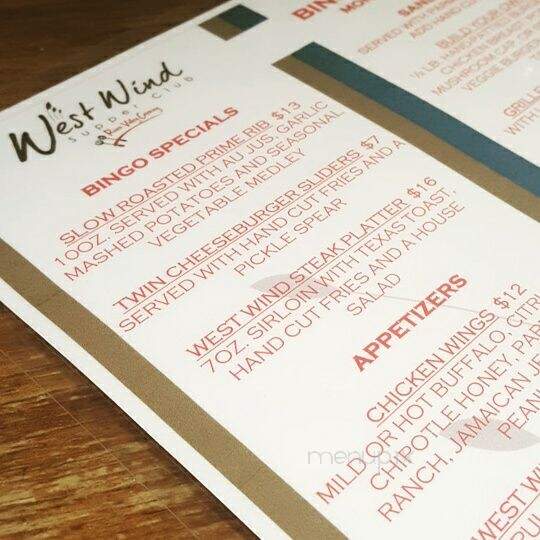 West Wind
SUPPER CLUB
BINGO SPECIALS
SLOW ROASTED PRIME RIB $13
10OZ. SERVED WITH AU JUS, GARLIC
MASHED POTATOES AND SEASONAL
VEGETABLE MEDLEY
TWIN CHEESEBURGER SLIDERS $7
SERVED WITH HAND CUT FRIES AND A
PICKLE SPEAR
WEST WIND STEAK PLATTER $16
7OZ. SIRLOIN WITH TEXAS TOAST,
HAND CUT FRIES AND A HOUSE
SALAD
APPETIZERS
CHICKEN WINGS $12
MILD OR HOT BUFFALO, CITR
CHIPOTLE HONEY, PAR
RANCH, JAMAICAN JE
PEAN
WEST W
PU
BIN
MO
SAN
SERVED WITH
ADD HAND CU
BUILD YOUR OW
½ LB. HANDPATTIED B
CHICKEN BREA
MUSHROOM CAP OR
VEGGIE BURGER
GRILLE
WITH